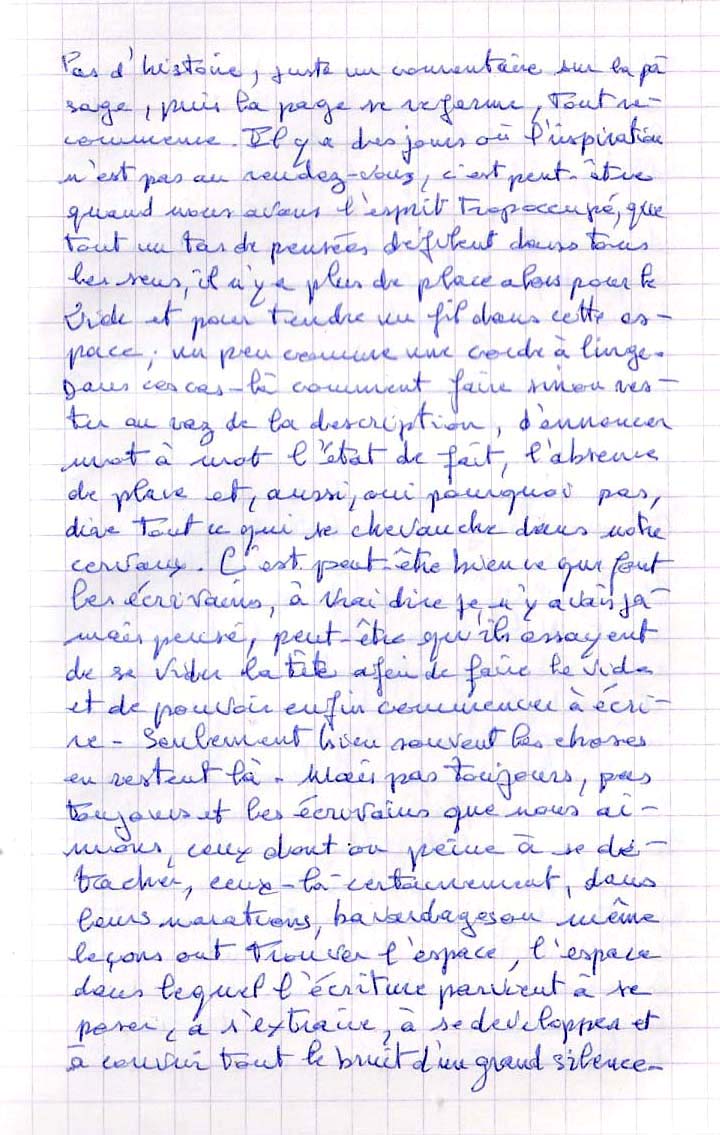 Pas d'histoire, juste un commentaire sur la pa
sage, puis la page se referme, Tout re-
commence. Il y a des jours où l'inspiration
n'est pas au rendez-vous, c'est peut-être
quand nous avons l'esprit trop occupé, que
tout un tas de pensées défilent dans tous
les sens, il n'y a plus de place alors pour le
vide et pour tendre un fil dans cette es-
pace, un peu comme une corde à linge.
Dans ces cas-là comment faire sinon res-
ter au raz de la description, d'ennoncer
mot à mot l'état de fait, l'absence
de place et, aussi, oui pourquoi pas,
dire tout ce qui se chevauche dans notre
cerveau. C'est peut-être bien ce que font
les écrivains, à vrai dire je n'y avais ja-
mais pensé, peut-être qu'ils essayent
de se vider la tête afin de faire le vide
et de pouvoir enfin commencer à écri-
re - Seulement bien souvent les choses
en restent là - Mais pas toujours, pas
toujours et les écrivains que nous ai-
mons, ceux dont on peine à se dé-
tacher, ceux-là certainement, dans
leurs narations, bavardages ou même
leçons ont trouver l'espace, l'espace
dans lequel l'écriture parvient à se
poser, à s'extraire, à se developper et
à couvrir tout le bruit d'un grand silence-